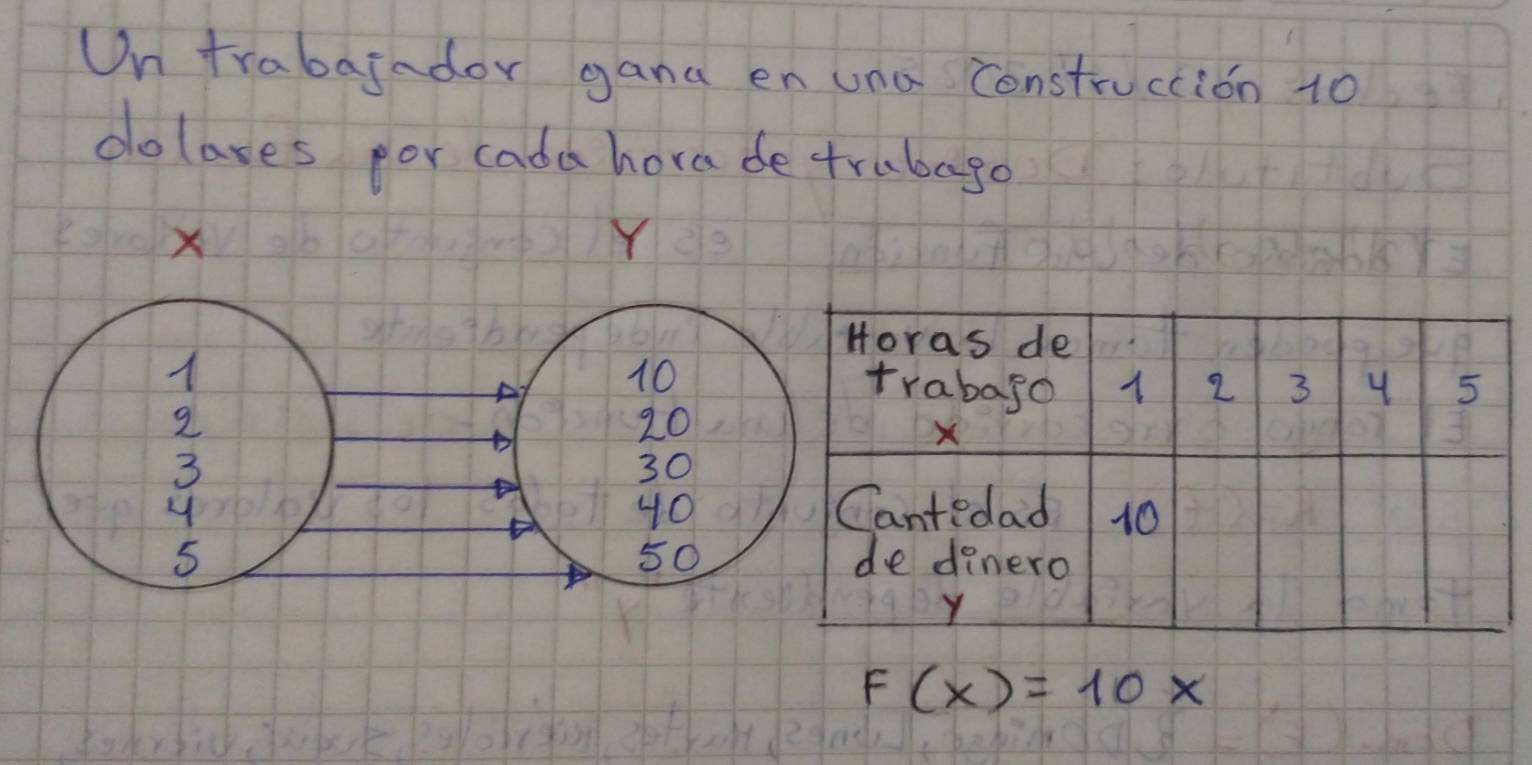 Un trabajador gana en una construcción 10
dolares por cada hora de trabajo
X Y
1
2
3
4
5
10
20
30
40
50
Horas de
trabajo 1 2 3 4 5
X
Cantidad 10
de dinero
Y
F(x) = 10 x